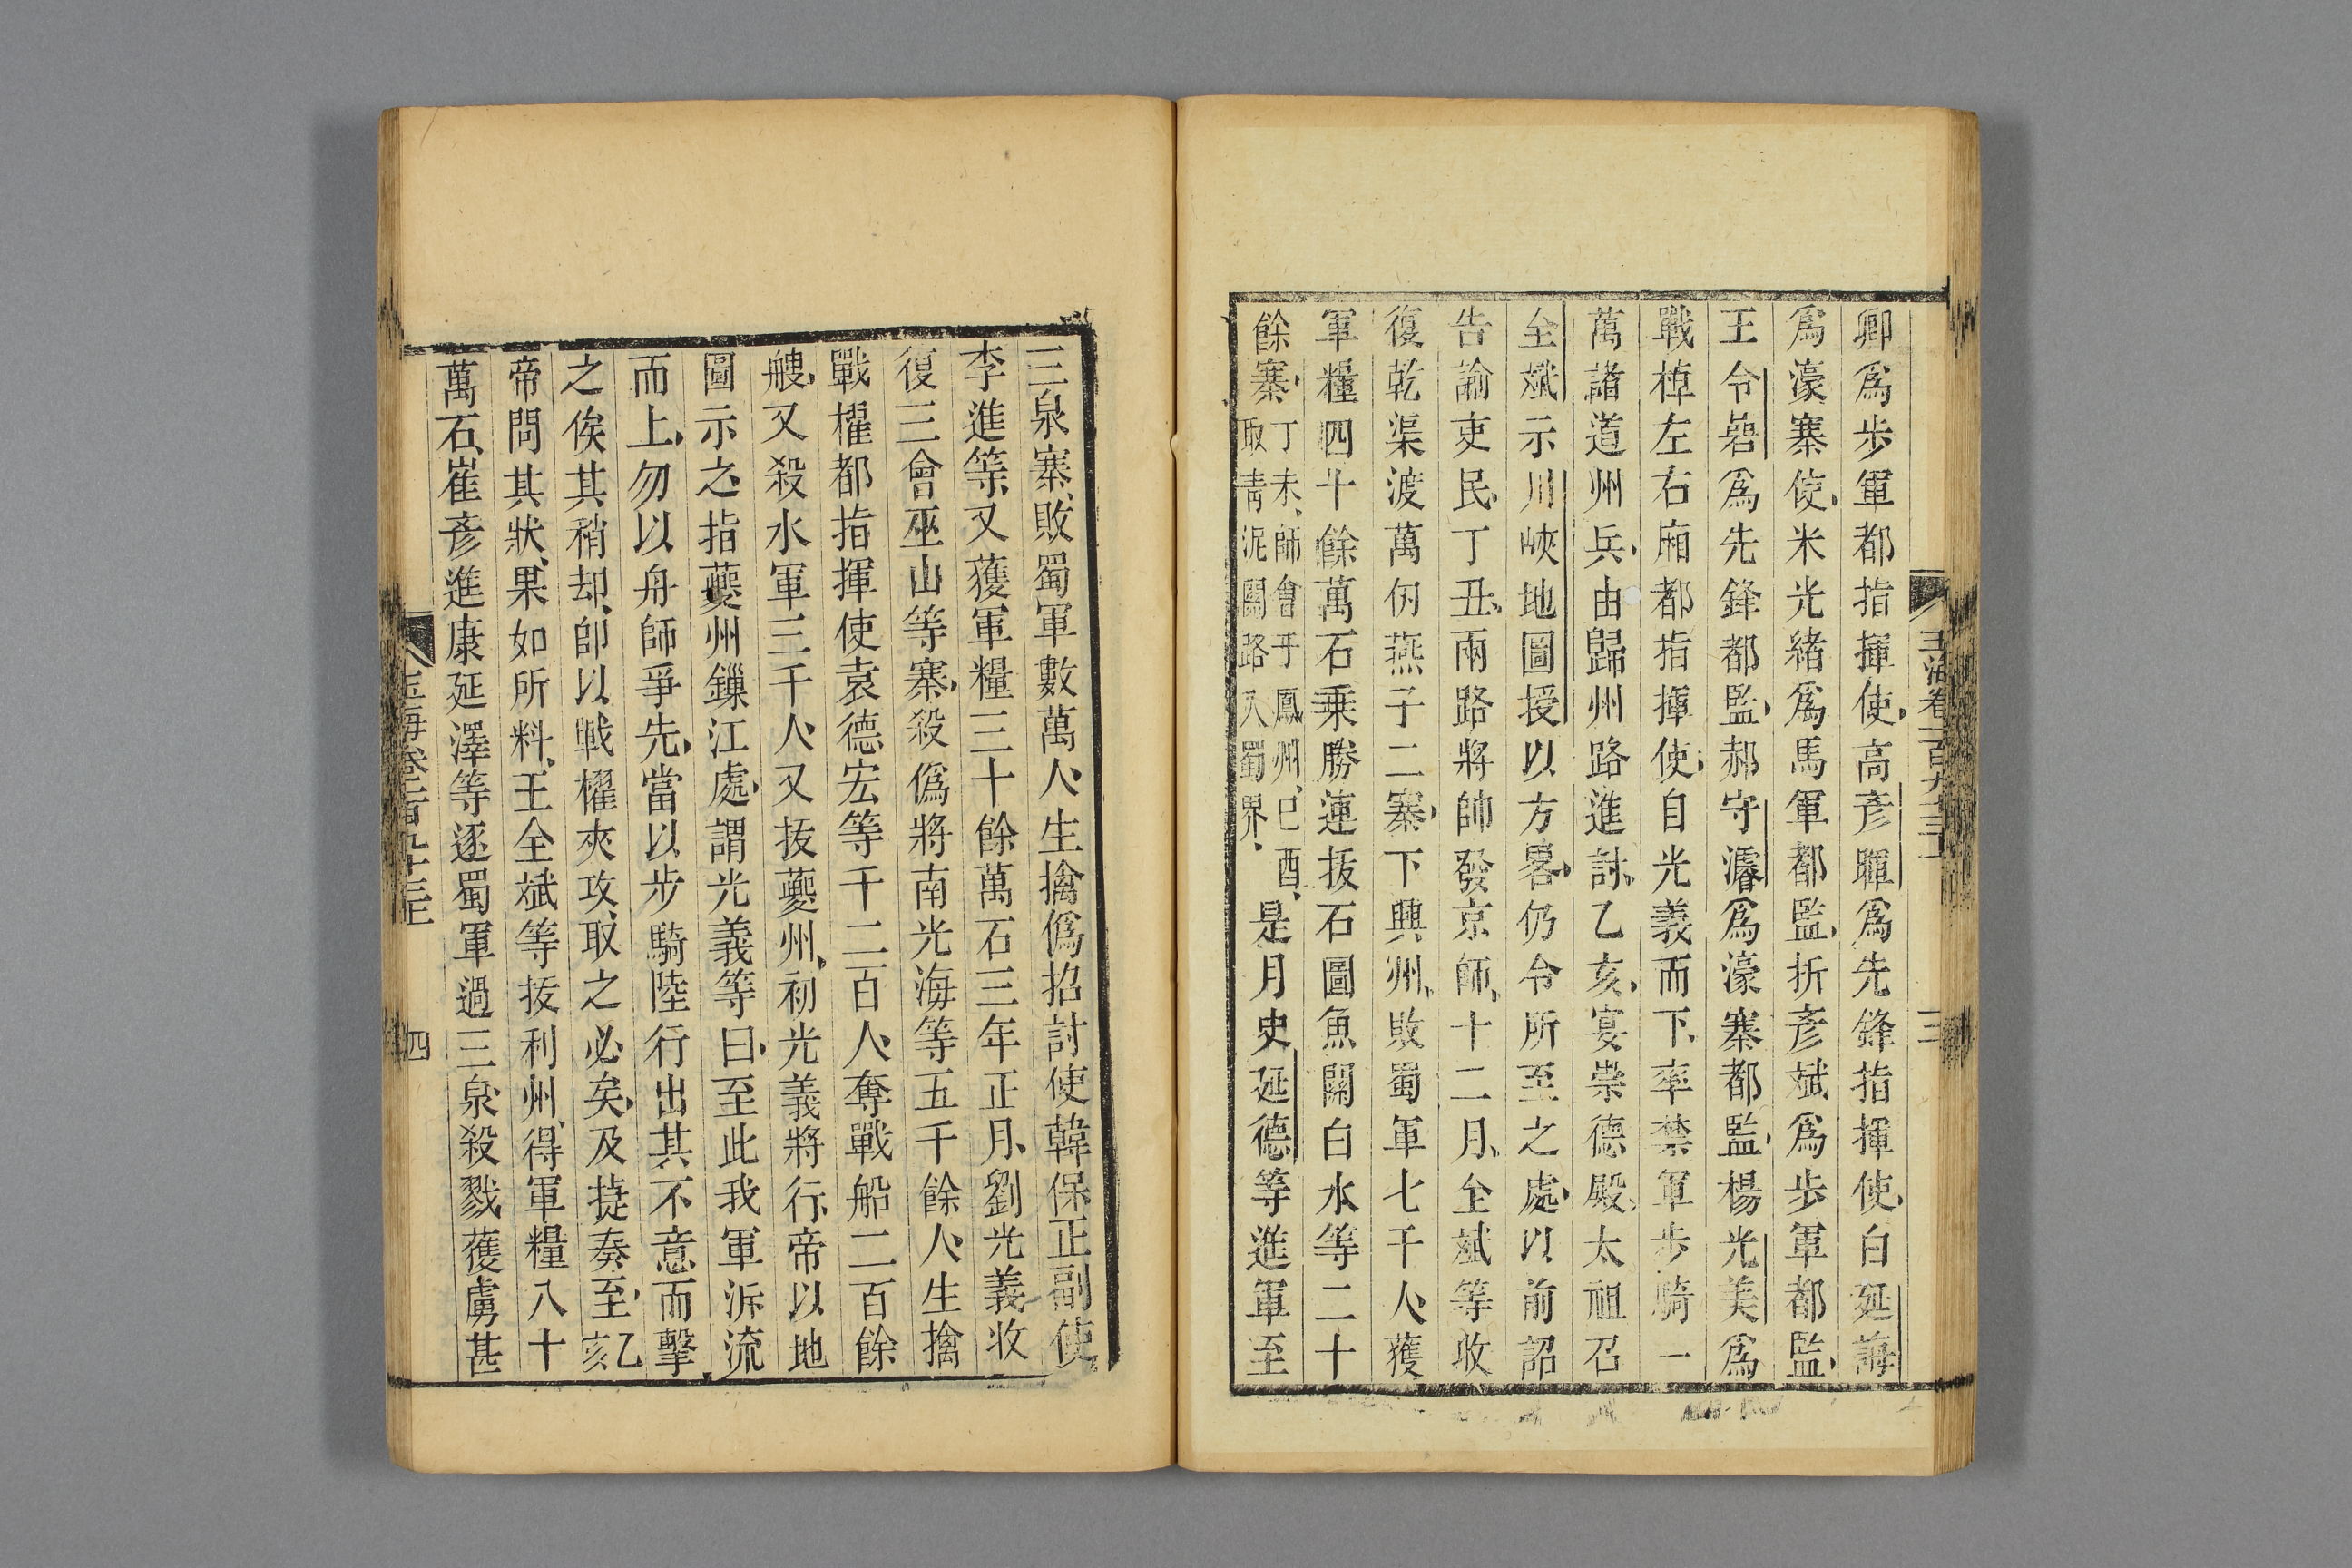 卿爲步軍都指揮使高彥暉爲先鋒指揮使白延誨
爲濠寨使米光緒爲馬軍都監折彥斌爲步軍都監
王令嵒爲先鋒都監郝守濬爲濠寨都監楊光美爲
戰棹左右廂都指揮使自光義而下率禁軍步騎一
萬諸道州兵由歸州路進討乙亥宴崇德殿太祖召
全斌示川峽地圖授以方畧仍令所至之處以前詔
告諭吏民丁丑兩路將帥發京師十二月全斌等收
復乾渠渡萬仞燕子二寨下興州敗蜀軍七千人獲
軍糧四十餘萬石乗勝連拔石圖魚關白水等二十
餘寨丁未師會于鳳州己酉取青泥關路入蜀界是月史延德等進軍至
玉海卷一百九十三上
三
三泉寨敗蜀軍數萬人生擒僞招討使韓保正副使
李進等又獲軍糧三十餘萬石三年正月劉光義收
復三會巫山等寨殺僞將南光海等五千餘人生擒
戰櫂都指揮使袁德宏等千二百人奪戰船二百餘
艘又殺水軍三千人又拔夔州初光義將行帝以地
圖示之指夔州鏁江處謂光義等曰至此我軍泝流
而上勿以舟師爭先當以步騎陸行出其不意而擊
之俟其稍却卽以戰櫂夾攻取之必矣及捷奏至乙亥
帝問其狀果如所料王全斌等拔利州得軍糧八十
萬石崔彥進康延澤等逐蜀軍過三泉殺戮獲虜甚
玉海卷一百九十三上
四